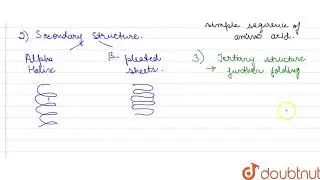 2) Secondary Structure.
Alpha
Helix
β-pleated
sheets.
simple sequence of
amino acid.
3) Tertiary structure
→ further folding
doubtnut